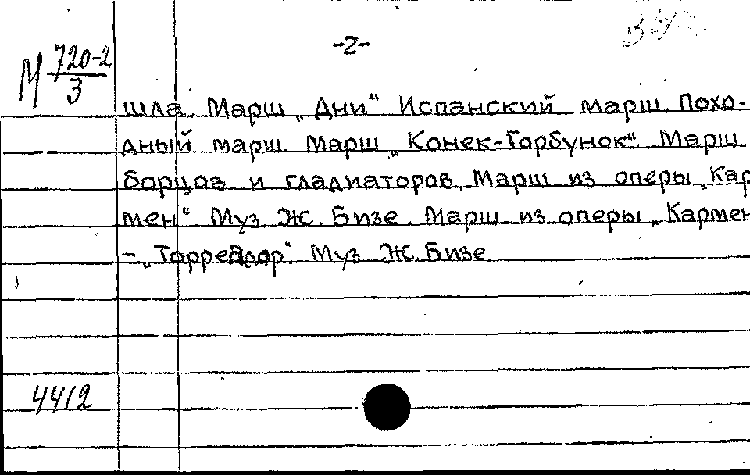 -2-
М 720-2
3
шла. Марш „Дни“ Испанский марш. Похо-
дный марш. Марш „Конек-Горбунок“. Марш
борцов и гладиаторов. Марш из оперы „Кар
мен“ Муз. Ж. Бизе. Марш из оперы „Кармен
– „Торреадор“. Муз. Ж. Бизе
4412